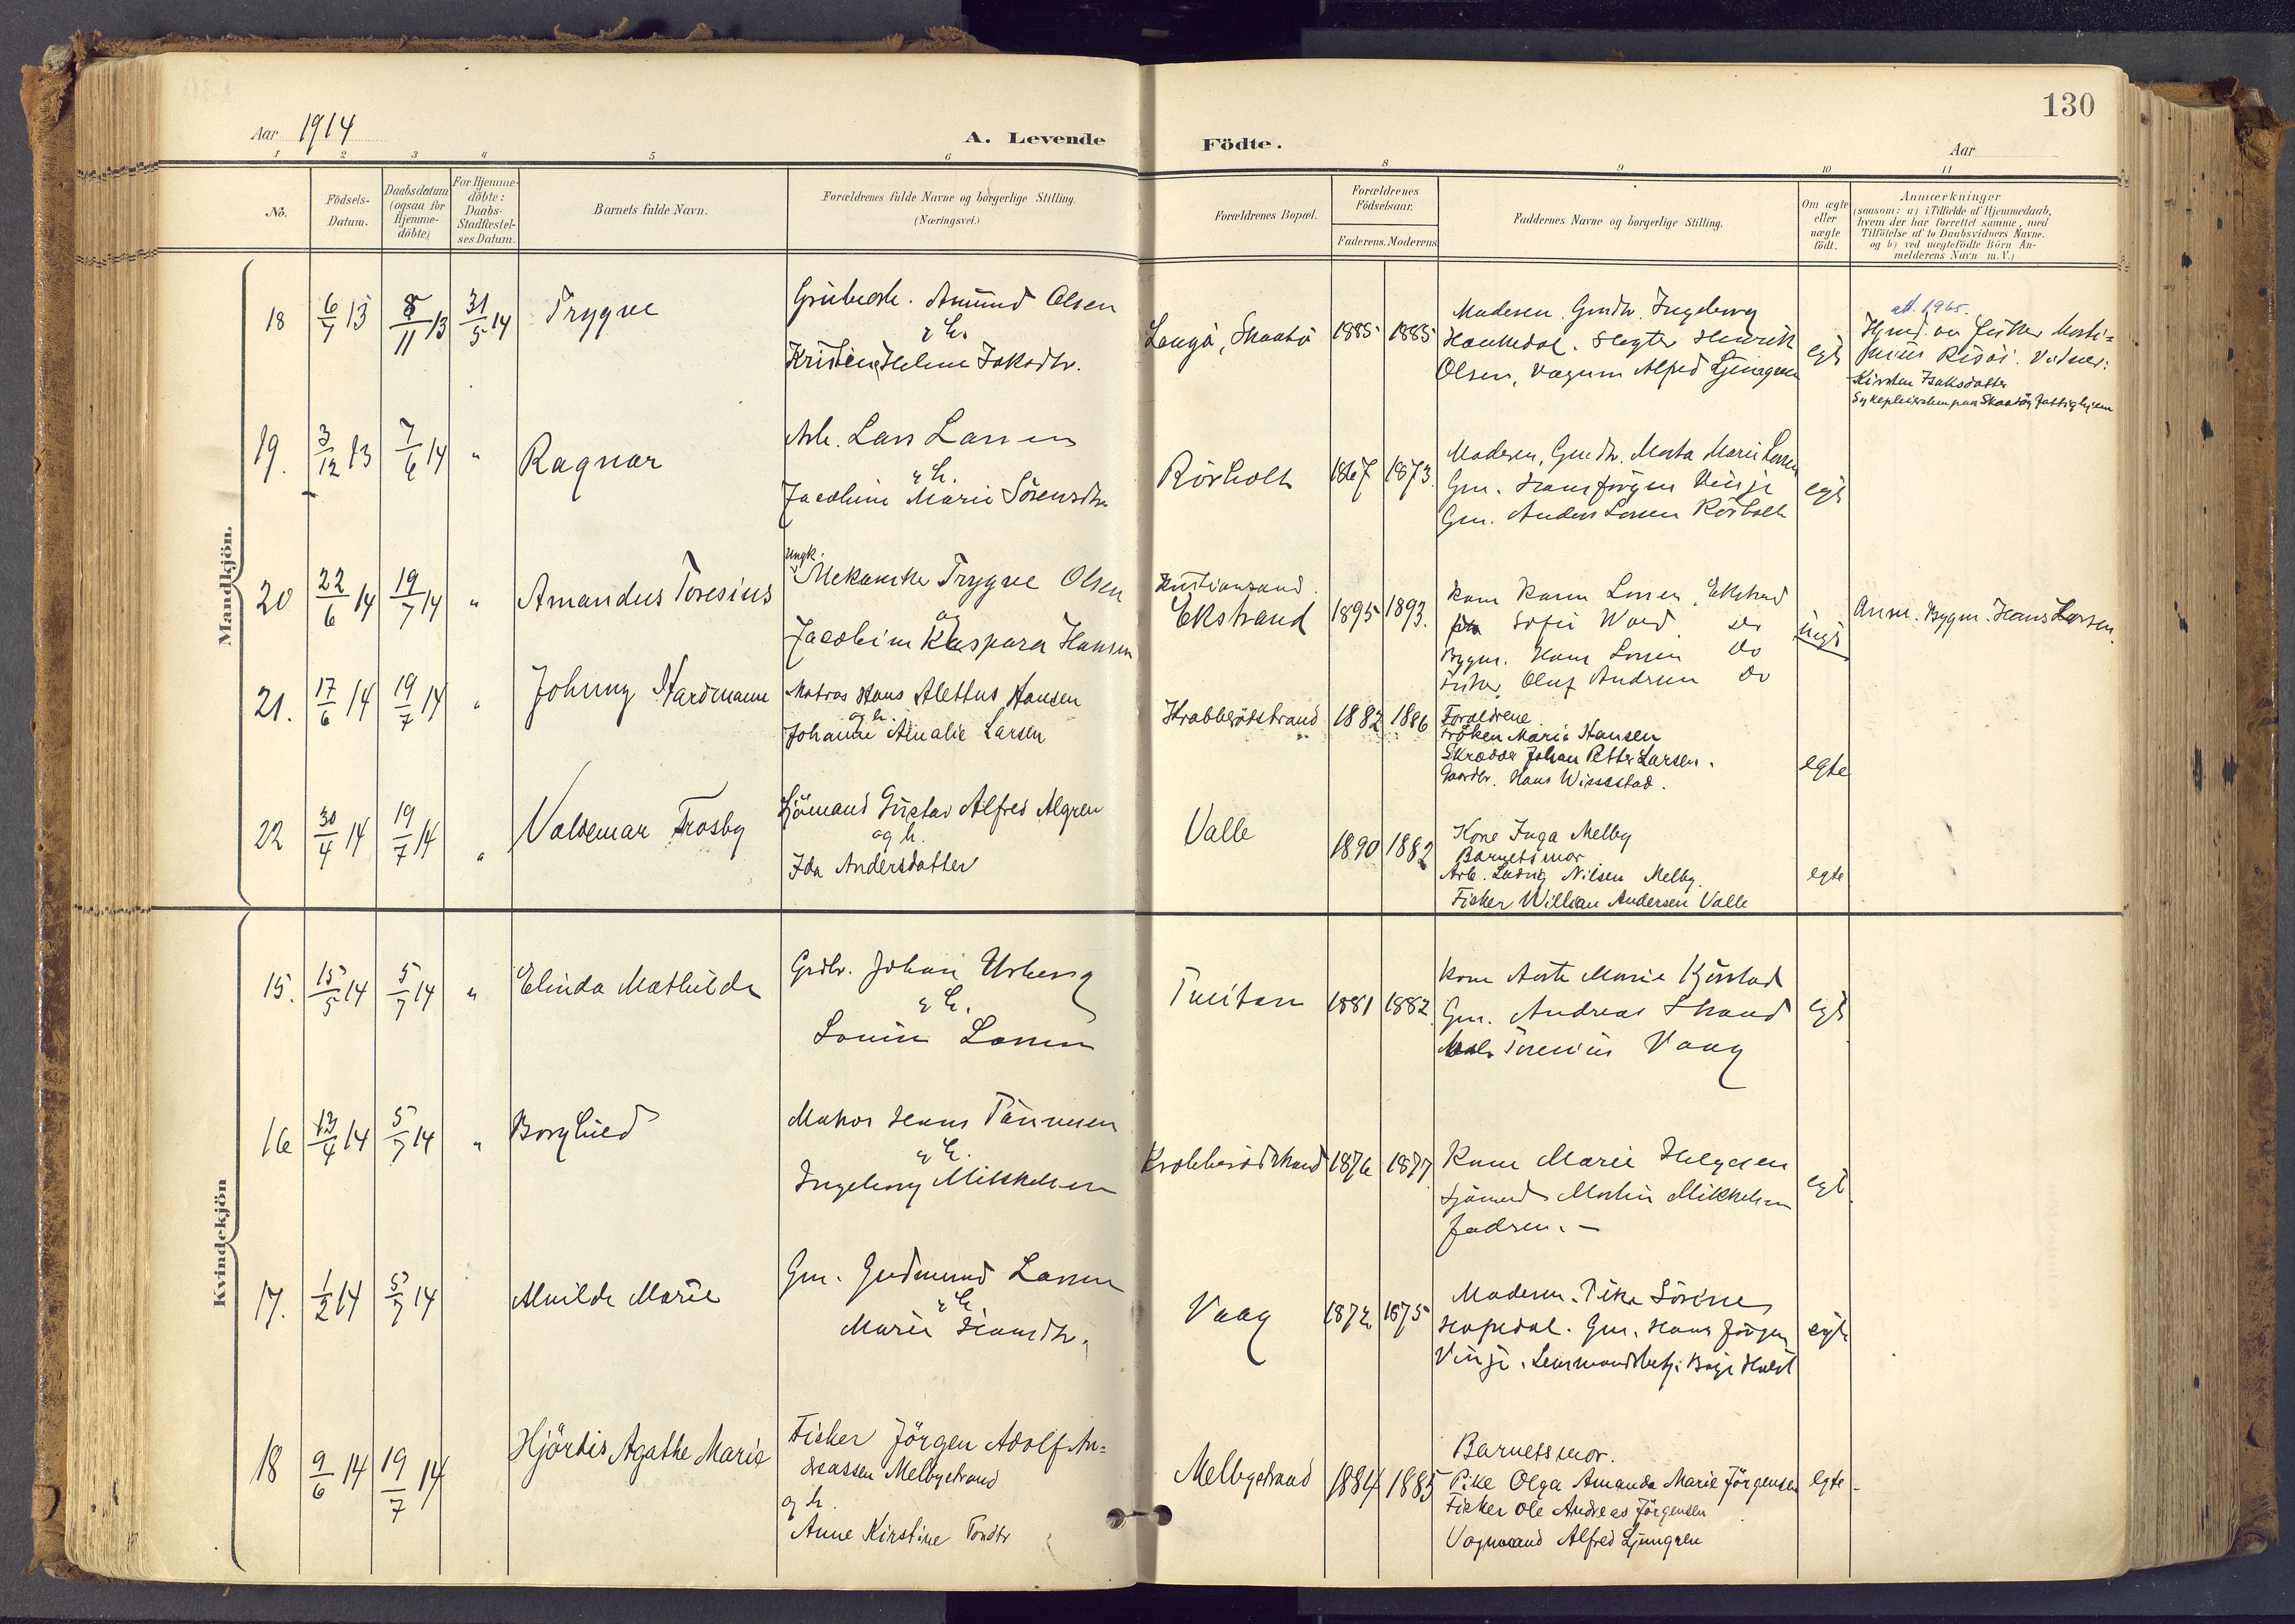 130
Aar 1914
A. Levende Födte.
Aar
1 2 3 4 5 6 8 9 10 11
No.
Födsels-Datum.
Daabsdatum (ogsaa for Hjemme-döbte)
For Hjemme-döbte: Daabs-Stadfæstel-ses Datum.
Barnets fulde Navn.
Forældrenes fulde Navne og borgerlige Stilling.
(Næringsvei.)
Forældrenes Bopæl.
Forældrenes Födselsaar.
Faderens. Moderens
Faddernes Navne og borgerlige Stilling.
Om ægte eller uægte födt.
Anmærkninger
(saasom: a) i Tilfælde af Hjemmedaab,
hvem der har forrettet samme, med
Tilföielse af to Daabsvidners Navne.
og b) ved uægtefödte Börn An-
melderens Navn m.V.)
Mandkjön.
18 6/7 13 8/11 13 31/5 14 Trygve
Amund Olsen
& h.
Kristine Helene Isaksdtr.
Langö, Skaatö 1885 1885
Moderen. Gmdtr. Ingeborg
Haukedal. Slagter Henrik
Olsen, Vognm Alfred Ljunggren
egte
att. 1965.
Hjmd. av fisker Marti=
nius Risöi. Vidner:
Kirsten Isaksdatter
Sykepleiersken paa Skaatöy Fattighjem
19. 3/12 13 7/6 14 " Ragnar
Arb. Lars Larsen
& h.
Jacobine Marie Sörensdtr
Rörholt 1867 1873.
Moderen, Gmdtr. Marta Marie Larsen
Gm. Hans Jörgen Vinje
Gm. Anders Larsen Rörholt
egte
20 22/6 14 19/7 14 " Amandus Toresius
Ungk.
Mekaniker Trygve Olsen
og
Jacobine Kaspara Hansen
Kristiansand.
Ekstrand 1895 1893.
Kone Karen Larsen, Ekstrand
Sofie Wold do
Bygm. Hans Larsen do
Fisker Oluf Andersen do
uegte
Anm. Bygm. Hans Larsen.
21. 17/6 14 19/7 14 " Johnny Hardmann
Matros Hans Alettus Hansen
og h.
Johanne Amalie Larsen
Krabberödstrand 1882 1886
Forældrene.
Fröken Marie Hansen
Skrædder Johan Petter Larsen.
Gaardbr. Hans Wissestad.
egte
22 30/4 14 19/7 14 " Valdemar Frosby
Sjömand Gustav Alfred Algren
og h.
Ida Andersdatter
Valle 1890 1882
Kone Inga Melby
Barnets mor
Arb. Ludvig Nilsen Melby.
Fisker William Andersen Valle
egte
Kvindekjön
15. 15/5 14 5/7 14 " Elinda Mathilde
Grdbr. Johan Urberg
& h.
Lovise Larsen
Tveiten 1881 1882.
Kone Aorte Marie Kjörstad
Gm. Andreas Strand
Toresius Vaag
egte
16 13/4 14 5/7 14 " Borghild
Matros Hans Tönnesen
& h.
Ingeborg Mikkelsen
Krabberödstrand 1876 1877
Kone Marie Helgesen
Sjömand Martin Mikkelsen
Fadren. —
egte
17. 1/2 14 5/7 14 Alvilde Marie
Gm. Gudmund Larsen
& h.
Marie Hansdtr.
Vaag 1872 1875
Moderen. Pike Sörine
Hapedal. Gm. Hans Jörgen
Vinje. Lensmandsbetj. Börje Holst
egte
18 9/6 14 19/7 14 Hjördis Agathe Marie
Fisker Jörgen Adolf An=
dreassen Melbystrand
og h.
Anne Kirstine Tordtr
Melbystrand 1884 1885
Barnets mor.
Pike Olga Amanda Marie Jörgensen
Fisker Ole Andreas Jörgensen
Vognmand Alfred Ljunggren
egte